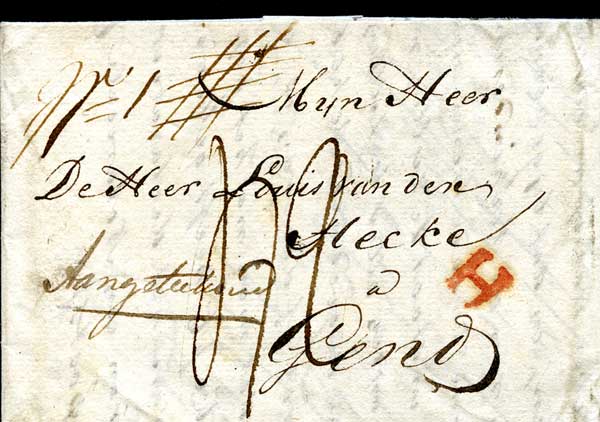 No 1 Mÿn Heer
De Heer Louis van den
Hecke
a
Gend
Aangeteekend
H